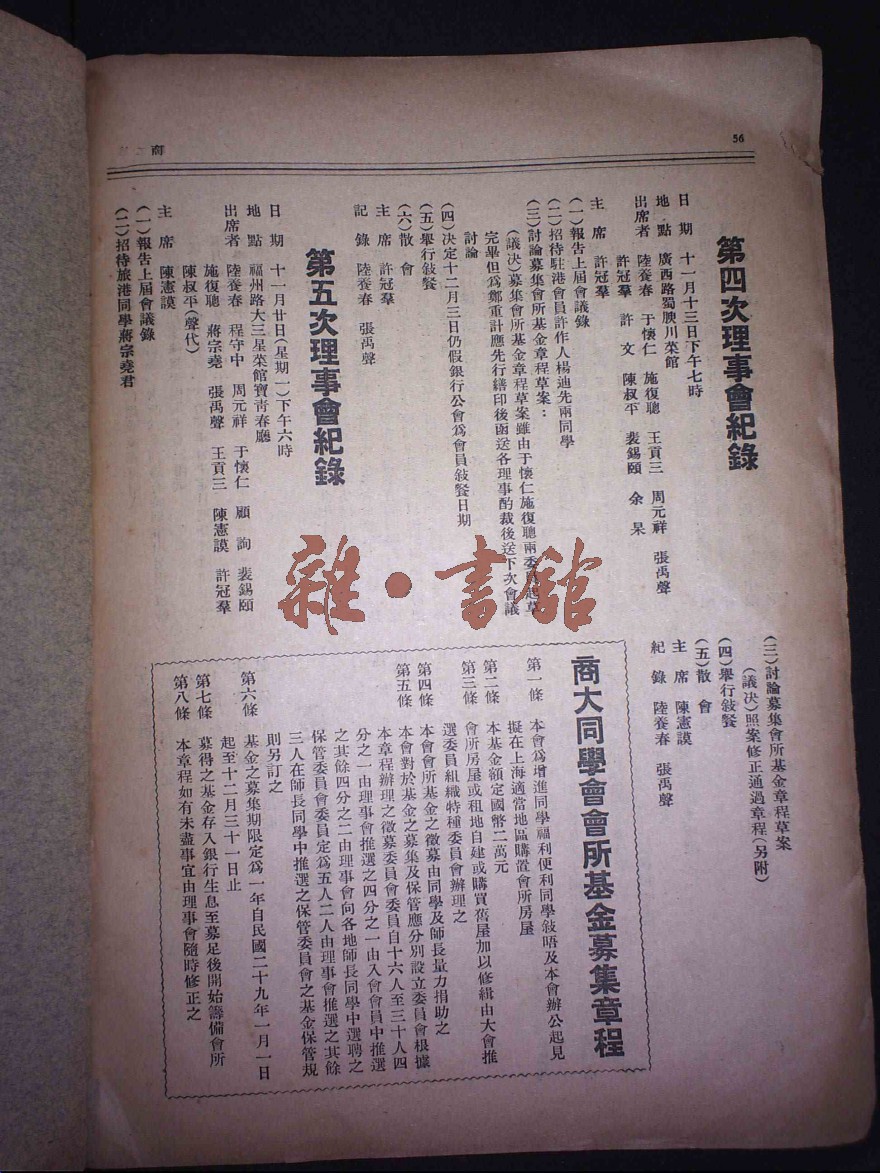 56
第四次理事會紀錄
日　期　十一月十三日下午七時
地　點　廣西路蜀腴川菜館
出席者　陸養春　于懷仁　施復聰　王貢三　周元祥　張禹聲
許冠羣　許　文　陳叔平　裴錫頤　余　杲
主　席　許冠羣
(一)報告上屆會議錄
(二)招待駐港會員許作人楊迪先兩同學
(三)討論募集會所基金章程草案：
(議決)募集會所基金章程草案雖由于懷仁施復聰兩委員起草
完畢但爲鄭重計應先行繕印後函送各理事酌裁後送下次會議
討論
(四)決定十二月三日仍假銀行公會爲會員敍餐日期
(五)舉行敍餐
(六)散　會
主　席　許冠羣
記　錄　陸養春　張禹聲
第五次理事會紀錄
日　期　十一月廿日(星期一)下午六時
地　點　福州路大三星菜館寶青春廳
出席者　陸養春　程守中　周元祥　于懷仁　顧　詢　裴錫頤
施復聰　蔣宗堯　張禹聲　王貢三　陳憲謨　許冠羣
陳叔平(聲代)
主　席　陳憲謨
(一)報告上屆會議錄
(二)招待旅港同學蔣宗堯君
(三)討論募集會所基金章程草案
(議決)照案修正通過章程(另附)
(四)舉行敍餐
(五)散　會
主　席　陳憲謨
紀　錄　陸養春　張禹聲
商大同學會會所基金募集章程
第一條　本會爲增進同學福利便利同學敍晤及本會辦公起見
擬在上海適當地區購置會所房屋
第二條　本基金額定國幣二萬元
第三條　會所房屋或租地自建或購買舊屋加以修緝由大會推
選委員組織特種委員會辦理之
第四條　本會會所基金之徵募由同學及師長量力捐助之
第五條　本會對於基金之募集及保管應分別設立委員會根據
本章程辦理之徵募委員會委員自十六人至三十人四
分之一由理事會推選之四分之一由入會會員中推選
之其餘四分之二由理事會向各地師長同學中選聘之
保管委員會委員定爲五人二人由理事會推選之其餘
三人在師長同學中推選之保管委員會之基金保管規
則另訂之
第六條　基金之募集期限定爲一年自民國二十九年一月一日
起至十二月三十一日止
第七條　募得之基金存入銀行生息至募足後開始籌備會所
第八條　本章程如有未盡事宜由理事會隨時修正之
雜·書館